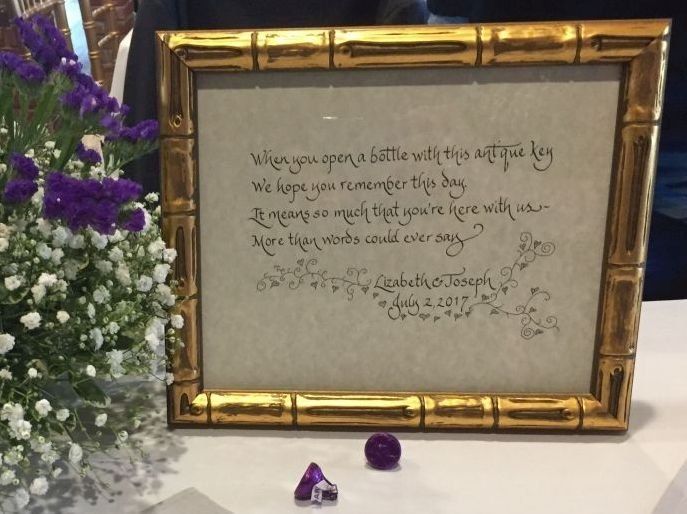 When you open a bottle with this antique key
We hope you remember this day.
It means so much that you're here with us~
More than words could ever say
Lizabeth & Joseph
July 2, 2017